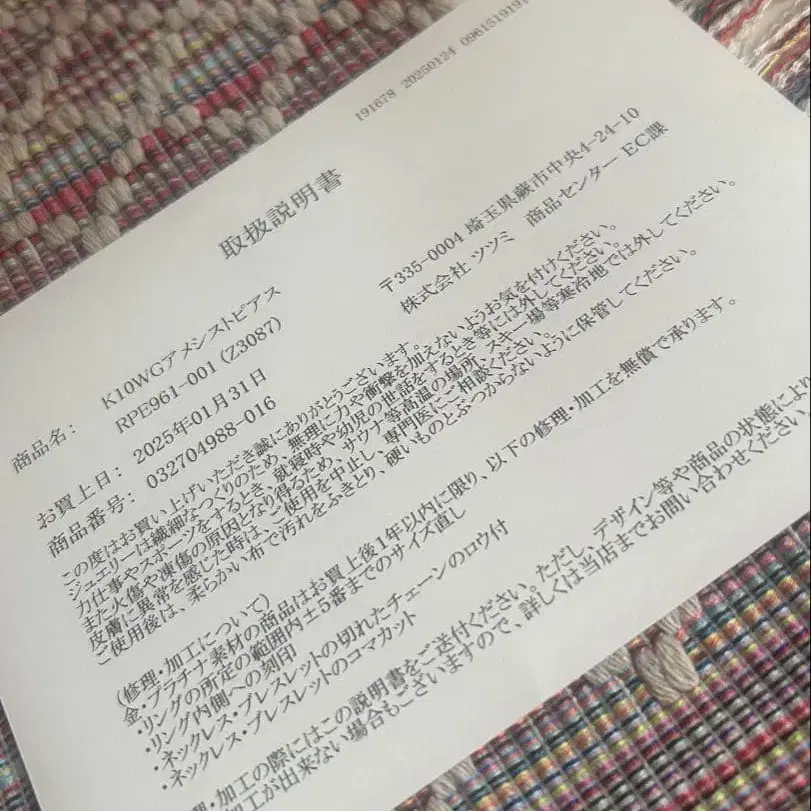 191678 20250124 0961519191
取扱説明書
〒335-0004 埼玉県蕨市中央4-24-10
株式会社 ツツミ 商品センター EC課
商品名: K10WGアメシストピアス
RPE961-001 (Z3087)
お買上日: 2025年01月31日
商品番号: 032704988-016
この度はお買い上げいただき誠にありがとうございます。
ジュエリーは繊細なつくりのため、無理に力や衝撃を加えないようお気を付けください。
力仕事やスポーツをするとき、就寝時や幼児の世話をするとき等には外してください。
また火傷や凍傷の原因となり得るため、サウナ等高温の場所、スキー場等寒冷地では外してください。
皮膚に異常を感じた時は、ご使用を中止し、専門医にご相談ください。
ご使用後は、柔らかい布で汚れをふきとり、硬いものとぶつからないように保管してください。
(修理・加工について)
金・プラチナ素材の商品はお買上後1年以内に限り、以下の修理・加工を無償で承ります。
・リングの所定の範囲内±5番までのサイズ直し
・リング内側への刻印
・ネックレス・ブレスレットの切れたチェーンのロウ付
・ネックレス・ブレスレットのコマカット
理・加工の際にはこの説明書をご送付ください。ただし、デザイン等や商品の状態により
加工が出来ない場合もございますので、詳しくは当店までお問い合わせください